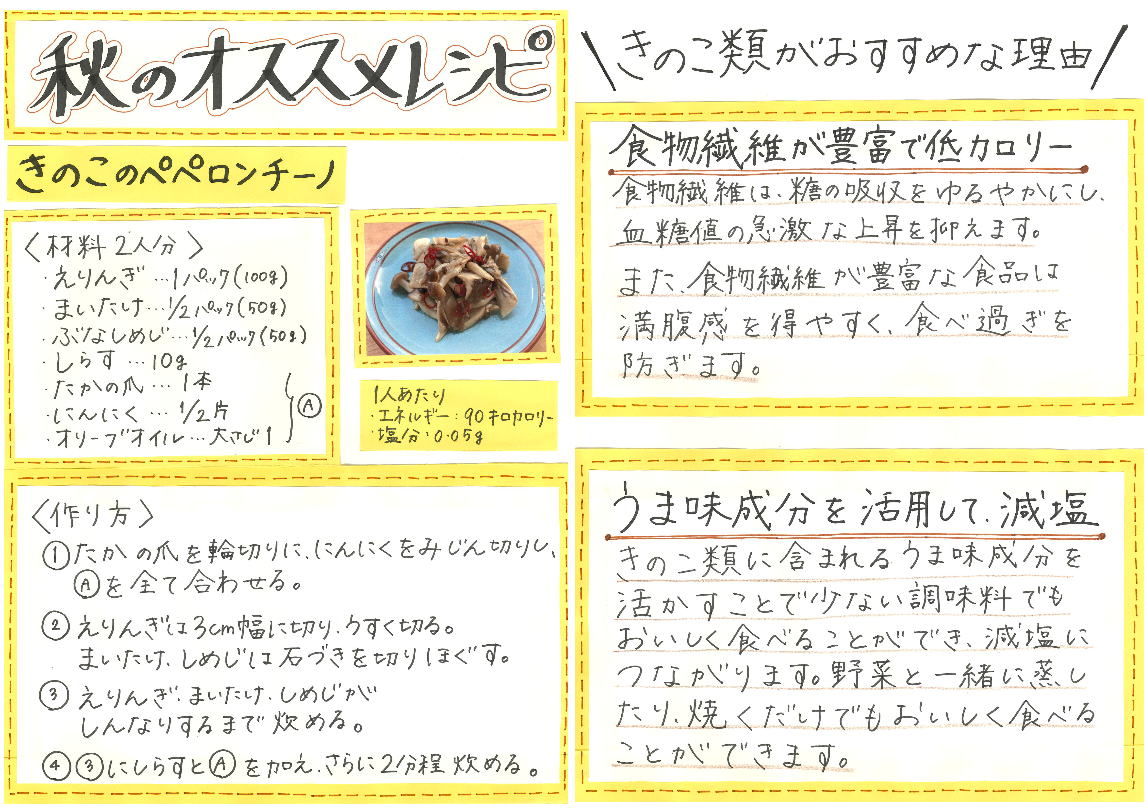 秋のオススメレシピ
きのこのペペロンチーノ
〈材料2人分〉
・えりんぎ…1パック(100g)
・まいたけ…1/2パック(50g)
・ぶなしめじ…1/2パック(50g)
・しらす…10g
・たかの爪…1本
・にんにく…1/2片
・オリーブオイル…大さじ1
Ⓐ
1人あたり
・エネルギー:90キロカロリー
・塩分:0.05g
〈作り方〉
①たかの爪を輪切りに、にんにくをみじん切りし、
Ⓐを全て合わせる。
②えりんぎは3cm幅に切り、うすく切る。
まいたけ、しめじは石づきを切りほぐす。
③えりんぎ、まいたけ、しめじが
しんなりするまで炒める。
④③にしらすとⒶを加え、さらに2分程炒める。
\きのこ類がおすすめな理由/
食物繊維が豊富で低カロリー
食物繊維は、糖の吸収をゆるやかにし、
血糖値の急激な上昇を抑えます。
また、食物繊維が豊富な食品は
満腹感を得やすく、食べ過ぎを
防ぎます。
うま味成分を活用して、減塩
きのこ類に含まれるうま味成分を
活かすことで少ない調味料でも
おいしく食べることができ、減塩に
つながります。野菜と一緒に、蒸し
たり、焼くだけでもおいしく食べる
ことができます。